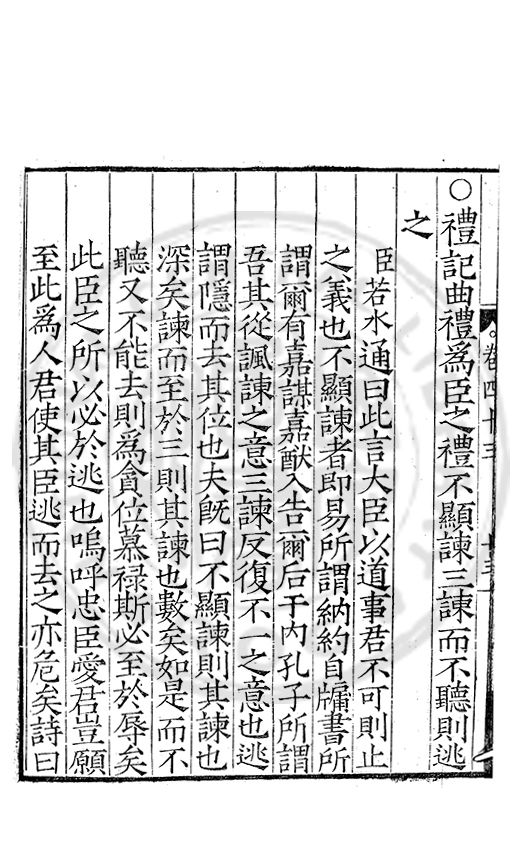 卷四十三 十五
○禮記曲禮爲臣之禮不顯諫三諫而不聽則逃
之
臣若水通曰此言大臣以道事君不可則止
之義也不顯諫者即易所謂納約自牖書所
謂爾有嘉謀嘉猷入告爾后于内孔子所謂
吾其從諷諫之意三諫反復不一之意也逃
謂隱而去其位也夫旣曰不顯諫則其諫也
深矣諫而至於三則其諫也數矣如是而不
聽又不能去則爲貪位慕禄斯必至於辱矣
此臣之所以必於逃也嗚呼忠臣愛君豈願
至此爲人君使其臣逃而去之亦危矣詩曰